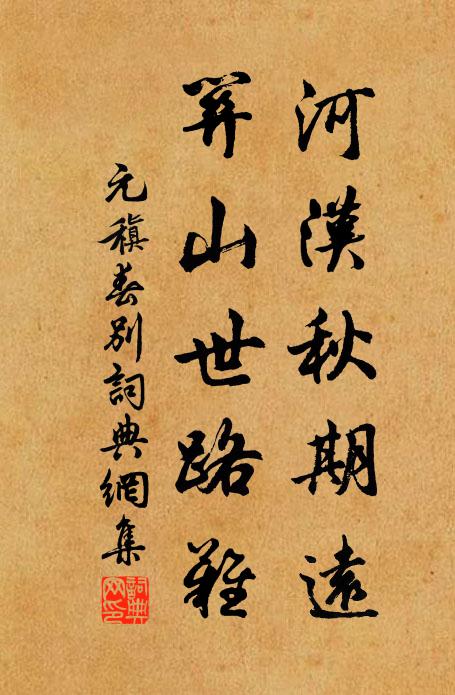 河漢秋期遠
關山世路難
元稹春別詞典網集
詞典网印